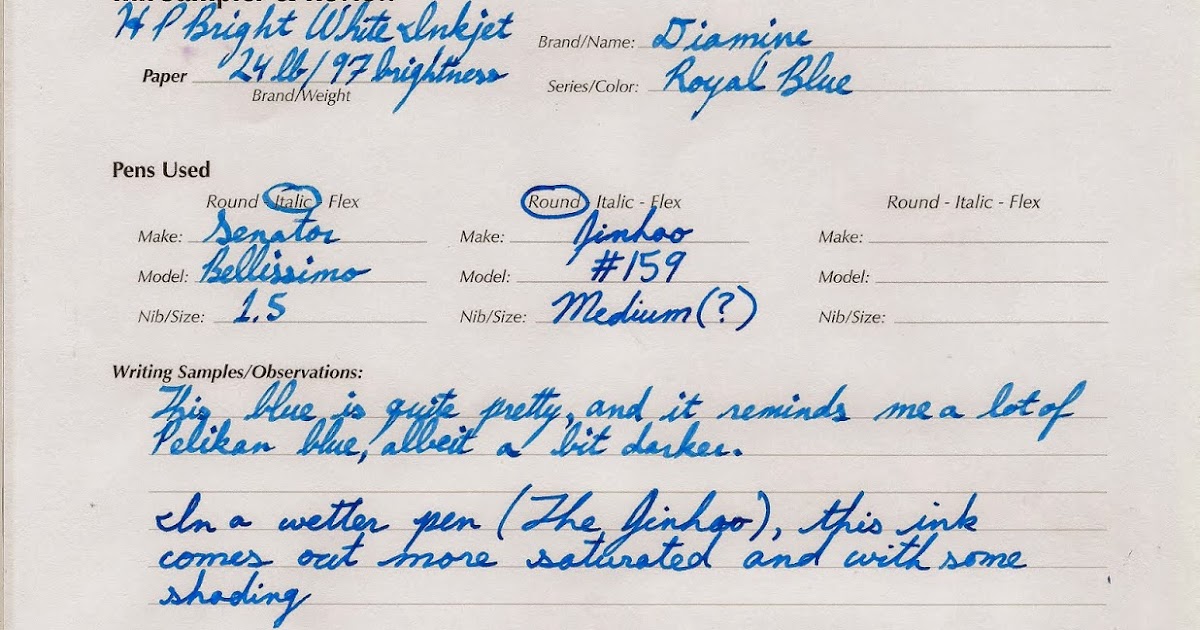 HP Bright White Inkjet
Brand/Name: Diamine
Paper 24 lb/97 brightness
Series/Color: Royal Blue
Brand/Weight
Pens Used
Round - Italic - Flex Round - Italic - Flex Round - Italic - Flex
Make: Senator Make: Jinhao Make:
Model: Bellissimo Model: #159 Model:
Nib/Size: 1.5 Nib/Size: Medium (?) Nib/Size:
Writing Samples/Observations:
This blue is quite pretty, and it reminds me a lot of
Pelikan blue, albeit a bit darker.
In a wetter pen (The Jinhao), this ink
comes out more saturated and with some
shading